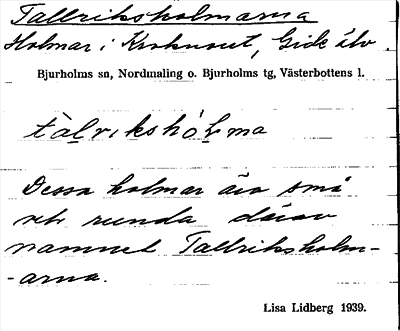 Tallriksholmarna
Holmar i Kroknoret, Gide älv.
Bjurholms sn, Nordmaling o. Bjurholms tg, Västerbottens l.
tàlrikshólma
Dessa holmar äro små
och runda därav
namnet Tallriksholm-
-arna.
Lisa Lidberg 1939.